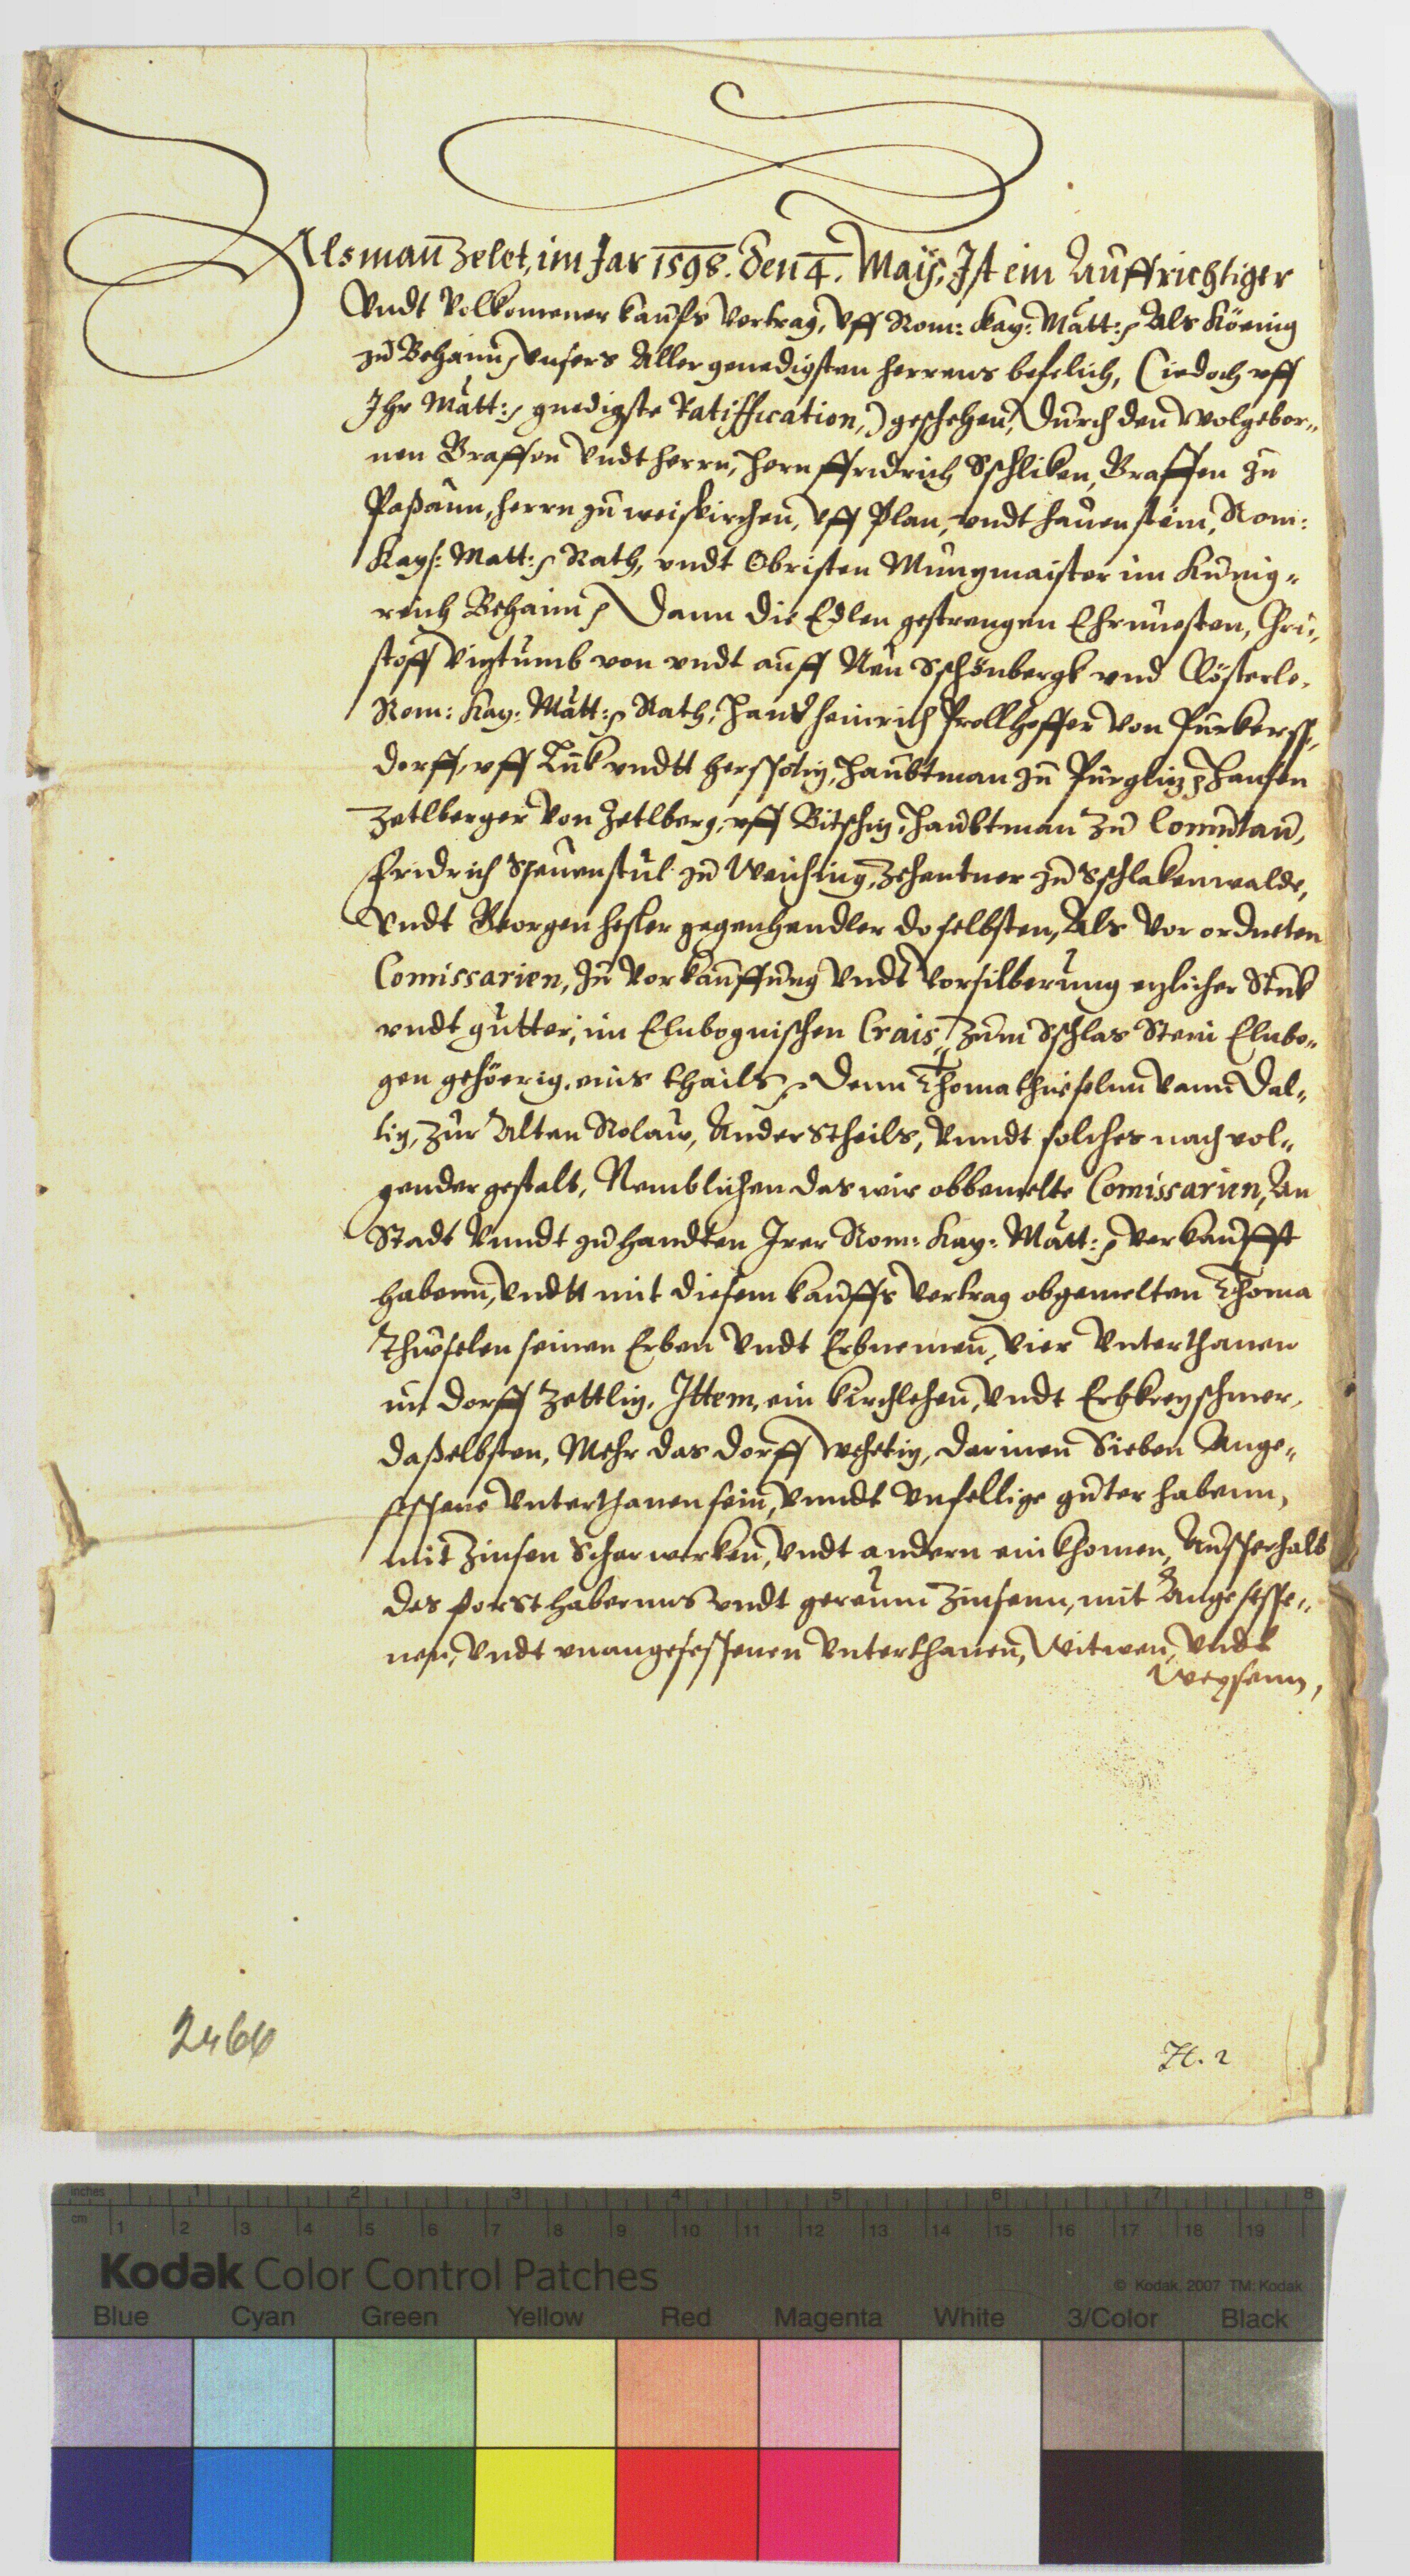 Als man zelet, im Jar 1598. den 4. Maij, Ist ein Auffrichtiger
Vndt Volkomener kauffs Vertrag, Vff Rom: Kay: Matt: Als Köenig
zu Behaim, Vnsers Aller genedigsten herrens befelich, (iedoch vff
Ihr Matt: gnedigste Ratiffication,) geschehen, Durch den Wolgebor„
nen Graffen Vndt herrn, herrn Ffridrich Schliken, Graffen zu
Paßaun, herrn zu weiskirchen, Vff Plan, vndt hauenstein, Rom:
Kays: Matt: Rath, vndt Obristen Müntzmaister im Künig„
reich Behaim, Dann die Edlen gestrengen Ehrnuesten, Chri„
stoff Vitztumb von vndt auff Neu Schönbergk vnd Clösterle,
Rom: Kay: Matt: Rath, Hans heinrich Prollhoffer Von Purkerss„
dorff, vff Luk vndtt herssotitz, Haubtman zu Pürglitz, Hansen
Zetlberger Von Zetlberg, vff Bitschitz, Haubtman zu Commtau,
Fridrich Speuenstul zu Weiching, Zehentner zu Schlakenwalde,
Vndt Georgen hesler gegenhandler doselbsten, Als Vor ordneten
Comissarien, zu Vorkauffung Vndt Vorsilberung etzlicher Stuk
vndt gutter, im Elnbognischen Crais, zum Schlas Stein Elnbo„
gen gehöerig, eins theils, Denn Thoma thüeseln vann Dal„
litz, zur Alten Rolaw, Anderstheils, Vnndt solches nach vol„
gender gestalt, Nemblichen das wir obbemelte Comissarien, An
Stadt Vnndt zu handten Irer Rom: Kay: Matt: Verkaufft
habenn, Vndtt mit diesem kauffs Vertrag obgemelten Thoma
Thüselen seinen Erben Vndt Erbnemen, Vier Vnterthanen
im dorff Zettlitz, Ittem, ein kirchlehen, Vndt Erbkretzschmer,
daßelbsten, Mehr das dorff Wehetitz, darinen Sieben Ange„
sessene Vnterthanen sein, Vnndt Vnfellige guter habenn,
mit Zinsen Scharwerken, Vndt andern einkhomen, Ausserhalb
des forst habernns vndt gereum Zinsenn, mit Angesesse„
nen, Vndt vnangesessenen Vnterthanen, Witwen, Vndt
Weysenn,
2466
H. 2
inches 1 2 3 4 5 6 7 8
cm 1 2 3 4 5 6 7 8 9 10 11 12 13 14 15 16 17 18 19
Kodak Color Control Patches
© Kodak, 2007 TM: Kodak
Blue Cyan Green Yellow Red Magenta White 3/Color Black